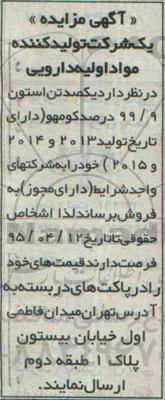 « آگهی مزایده »
یک شرکت تولیدکننده
مواد اولیه دارویی
در نظر دارد یکصد تن استون
۹۹/۹ درصد کومهو (دارای
تاریخ تولید ۲۰۱۳ و ۲۰۱۴
و ۲۰۱۵ ) خود را به شرکتهای
واجد شرایط (دارای مجوز) به
فروش برساند لذا اشخاص
حقوقی تا تاریخ ۹۵/۰۴/۱۲
فرصت دارند قیمت های خود
را در پاکت های در بسته به
آدرس تهران میدان فاطمی
اول خیابان بیستون
پلاک ۱ طبقه دوم
ارسال نمایند.